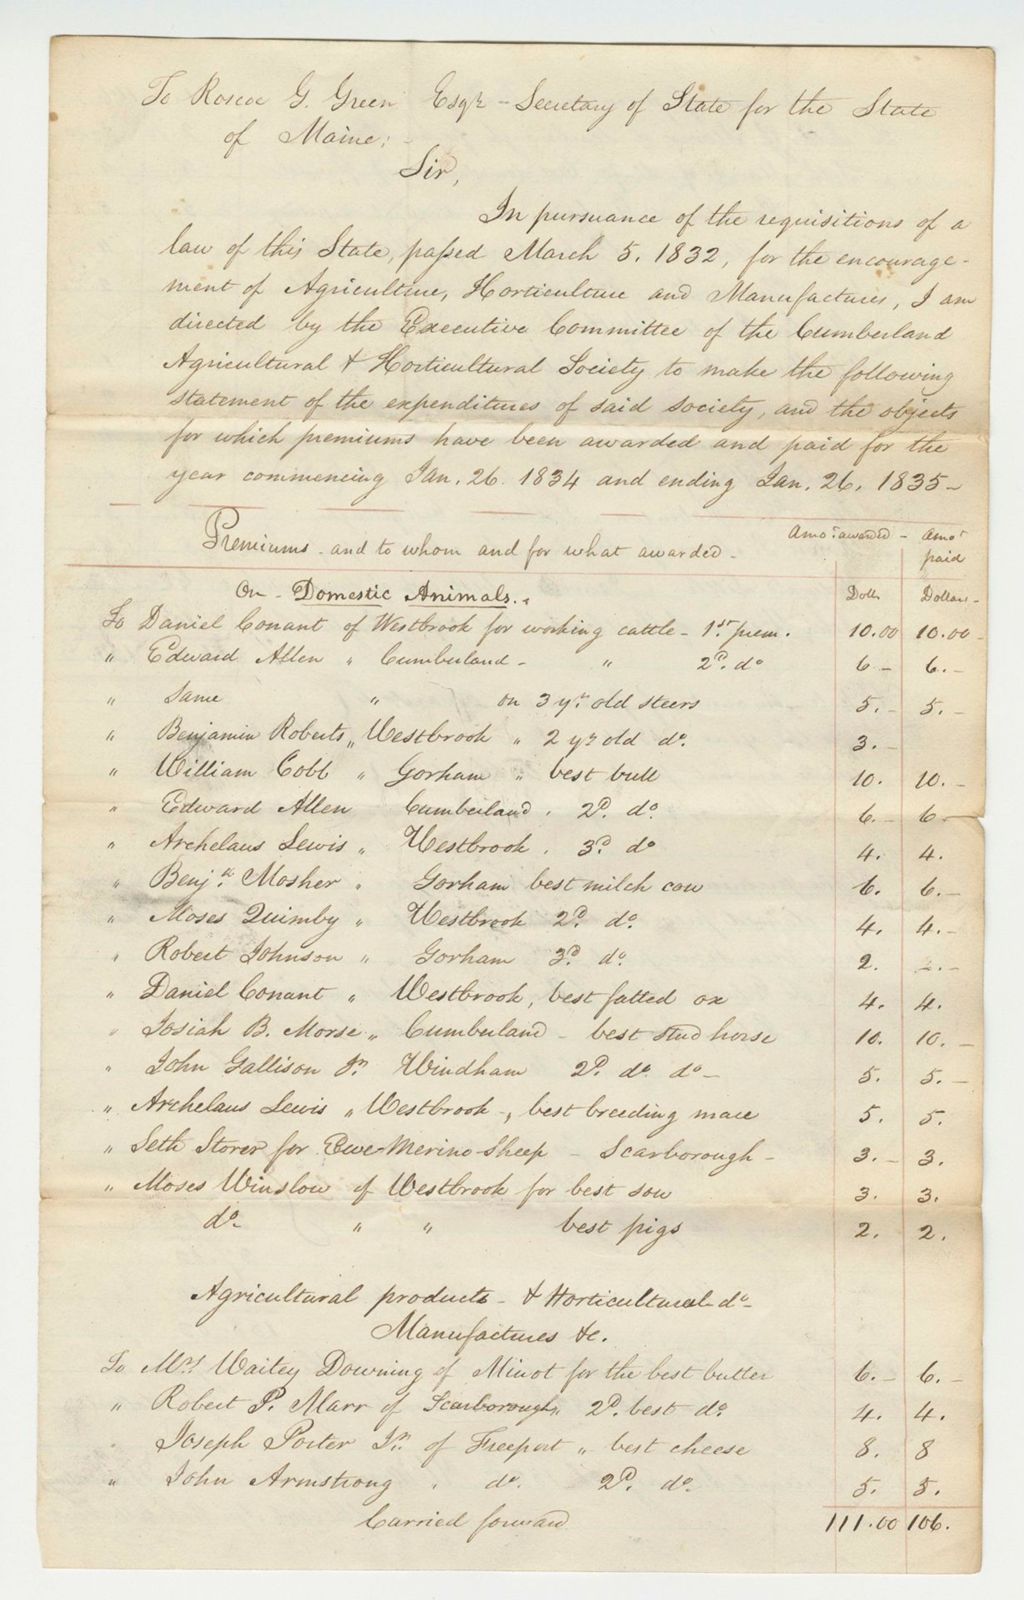 To Roscoe G. Green Esqr - Secretary of State for the State
of Maine; -
Sir,
In pursuance of the requisitions of a
law of this State, passed March 5. 1832, for the encourage-
ment of Agriculture, Horticulture and Manufactures, I am
directed by the Executive Committee of the Cumberland
Agricultural & Horticultural Society to make the following
statement of the expenditures of said society, and the objects
for which premiums have been awarded and paid for the
year commencing Jan. 26. 1834 and ending Jan. 26. 1835 -
Premiums - and to whom and for what awarded - Amot awarded - Amot paid
On - Domestic Animals. Dolls Dollars -
To Daniel Conant of Westbrook for working cattle - 1st prem. 10.00 10.00 -
" Edward Allen " Cumberland - " 2d. do 6 - 6. -
" Same " on 3 yr old steers 5. - 5. -
" Benjamin Roberts " Westbrook " 2 yr old do. 3. -
" William Cobb " Gorham " best bull 10. 10. -
" Edward Allen Cumberland . 2d. do. 6. - 6. -
" Archelaus Lewis " Westbrook . 3d. do 4. 4.
" Benja. Mosher " Gorham best milch cow 6. 6. -
" Moses Quimby " Westbrook 2d. do. 4. 4. -
" Robert Johnson " Gorham 3d. do. 2. 2. -
" Daniel Conant " Westbrook, best fatted ox 4. 4.
" Josiah B. Morse " Cumberland - best stud horse 10. 10. -
" John Gallison Jr. Windham 2d. do. do - 5. 5. -
" Archelaus Lewis " Westbrook -, best breeding mare 5. 5.
" Seth Storer for Ewe-Merino-Sheep - Scarborough - 3. - 3.
" Moses Winslow of Westbrook for best sow 3. 3.
do- " " best pigs 2. 2.
Agricultural products - & Horticultural do -
Manufactures &c.
To Mrs Waitey Downing of Minot for the best butter 6. - 6. -
" Robert P. Marr of Scarborough " 2d. best do. 4. 4.
Joseph Porter Jr. of Freeport " best cheese 8. 8
" John Armstrong " do. 2d. do. 5. 5.
Carried forward 111.00 106.